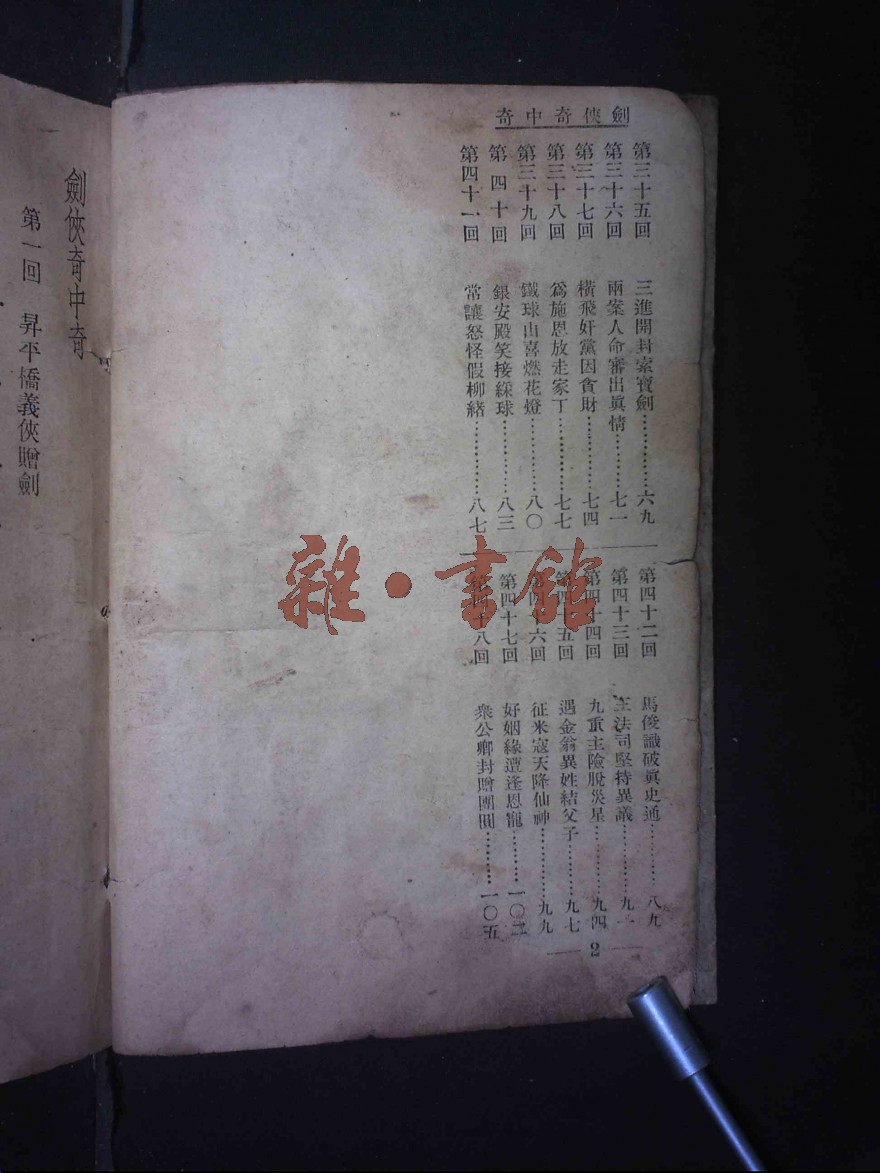 劍俠奇中奇
第三十五回 三進開封索寶劍……………六九
第三十六回 兩案人命審出眞情…………七一
第三十七回 橫飛奸黨因貪財……………七四
第三十八回 爲施恩放走家丁……………七七
第三十九回 鐵球山喜燃花燈……………八〇
第四十回 銀安殿笑接綵球……………八三
第四十一回 常讓怒怪假柳緒……………八七
第四十二回 馬俊識破眞史通…………八九
第四十三回 三法司堅持異議…………九一
第四十四回 九重主險脫災星…………九四
第四十五回 遇金翁異姓結父子………九七
第四十六回 征米寇天降仙神…………九九
第四十七回 好姻緣遭逢恩寵…………一〇二
第四十八回 衆公卿封贈團圓…………一〇五
2
雜·書館
劍俠奇中奇
第一回 昇平橋義俠贈劍